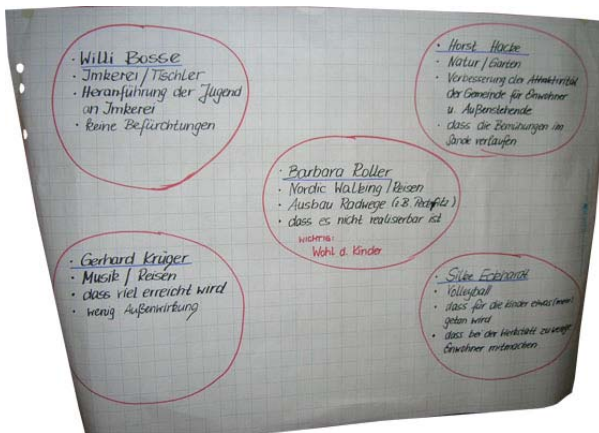 · Willi Bosse
· Imkerei/Tischler
· Heranführung der Jugend
an Imkerei
· keine Befürchtungen
· Horst Hacke
· Natur/Garten
· Verbesserung der Attraktivität
der Gemeinde für Einwohner
u. Außenstehende
· dass die Bemühungen im
Sande verlaufen
· Barbara Roller
· Nordic Walking/Reisen
· Ausbau Radwege (z.B.
· dass es nicht realisierbar ist
WICHTIG:
Wohl d. Kinder
· Gerhard Krüger
· Musik / Reisen
· dass viel erreicht wird
· wenig Außenwirkung
· Silke Eckhardt
· Volleyball
· dass für die Kinder etwas (mehr)
getan wird
· dass bei der Werkstatt zu wenige
Einwohner mitmachen